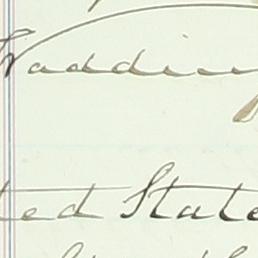 Waddin
ted State